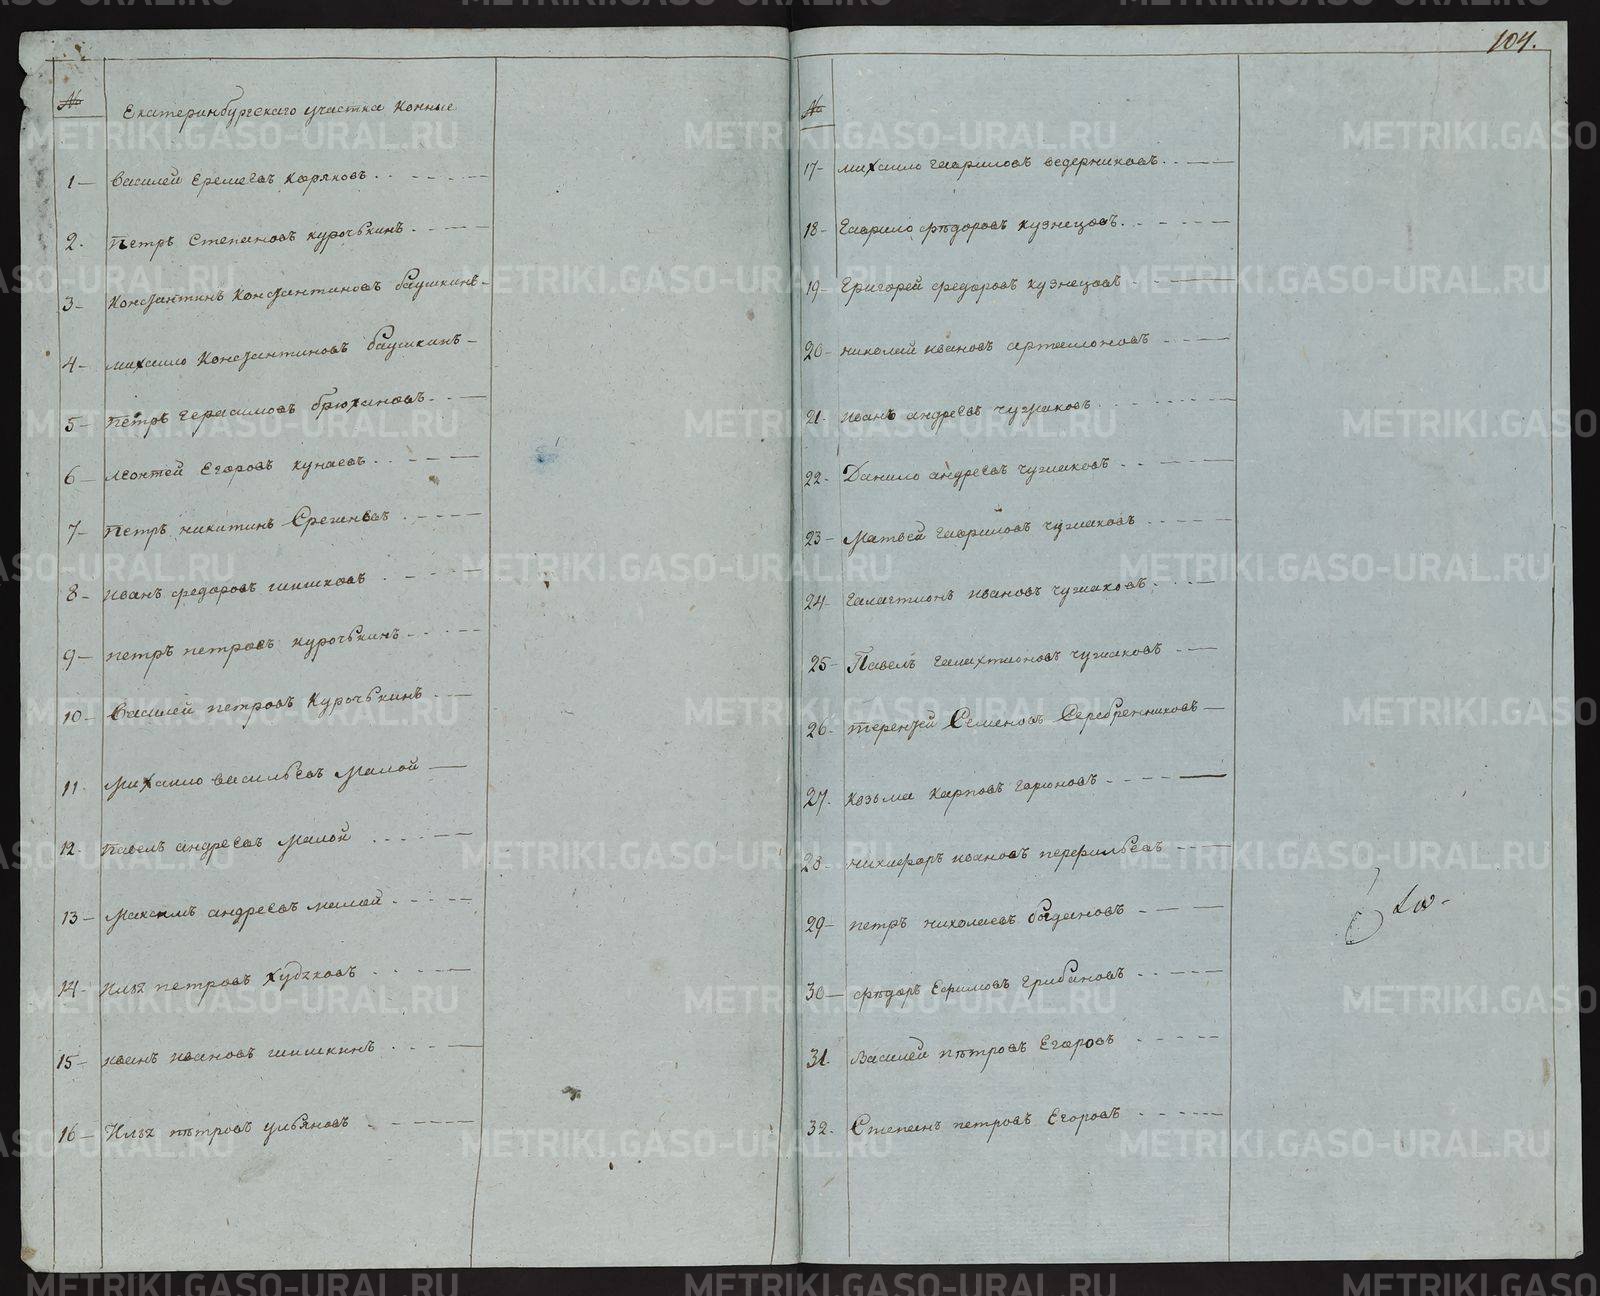 104.
№
Екатеринбургскаго участка конные
1 — Василей Еремеевъ Коряковъ
2. Петръ Степановъ Курочькинъ
3 — Константинъ Константиновъ баушкинъ
4 — михаило Константиновъ баушкинъ
5 — Петръ Герасимовъ брюхановъ
6 — леонтей Егоровъ кунаевъ
7 — Петръ никитинъ
8 — иванъ федоровъ шишковъ
9 — петръ петровъ курочькинъ
10 — Василей петровъ Курочькинъ
11. Михаило васильевъ Малой
12. Павелъ андреевъ Малой
13 — Максимъ андреевъ малой
14 — Илья петровъ Худяковъ
15 — иванъ ивановъ шишкинъ
16 — Илья пѣтровъ ульяновъ
№
17 — михаило гавриловъ ведерниковъ
18 — Гаврило фѣдоровъ кузнецовъ
19 — Григорей федоровъ кузнецовъ
20 — николай ивановъ артамоновъ
21. иванъ андреевъ чугмаковъ
22 — Данило андреевъ чугмаковъ
23 — Матвей гавриловъ чугмаковъ
24 — Галактионъ ивановъ чугмаковъ
25 — Павелъ галахтионовъ чугмаковъ
26 — терентей Семеновъ Серебренниковъ
27. козьма карповъ горюновъ
28 — никифоръ ивановъ перфильевъ
29 — петръ николаевъ богдановъ
30 — фѣдоръ Ефимовъ Грибановъ
31. Василей пѣтровъ Егоровъ
32. Степанъ петровъ Егоровъ